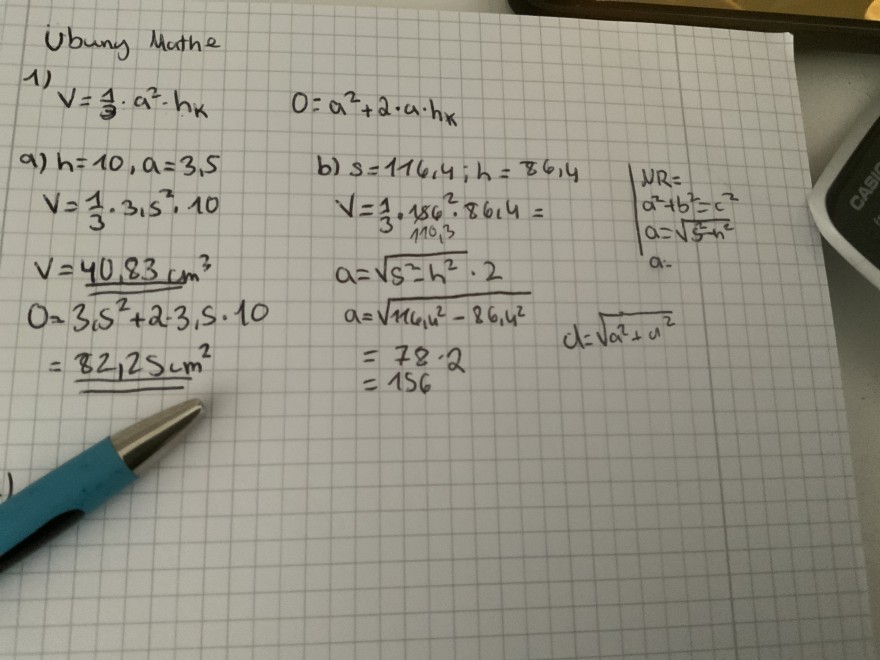 Übung Mathe
1)
V = 1/3 · a² · hK
O = a² + 2 · a · hK
a) h = 10, a = 3,5
V = 1/3 · 3,5² · 10
V = 40,83 cm³
O = 3,5² + 2 · 3,5 · 10
= 82,25 cm²
b) s = 116,4 ; h = 86,4
V = 1/3 · 156² · 86,4 =
110,3
a = √(s² − h²) · 2
a = √(116,4² − 86,4²)
= 78 · 2
= 156
NR =
a² + b² = c²
a = √(s² − h²)
a =
d = √(a² + a²)
CASIO